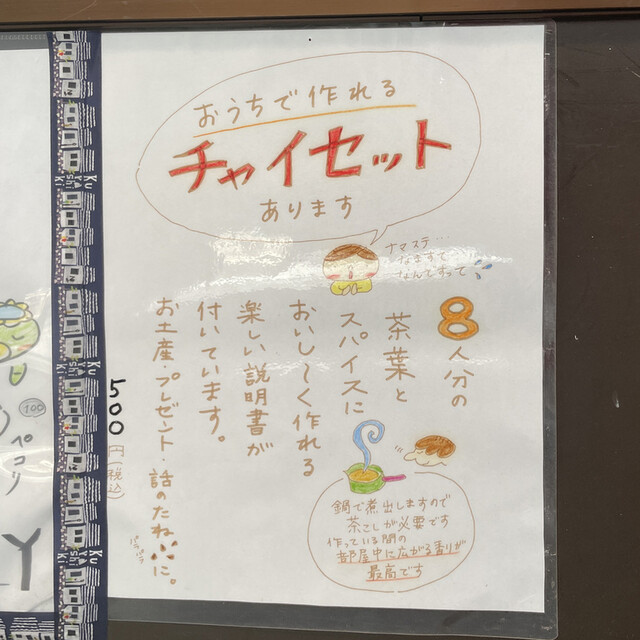 おうちで作れる
チャイセット
あります
ナマステ…
なますて
なんですって
8人分の
茶葉と
スパイスに
おいし〜く作れる
楽しい説明書が
付いています。
お土産・プレゼント・話のたねに。
パラパラ
500円(税込)
鍋で煮出しますので
茶こしが必要です
作っている間の
部屋中に広がる香りが
最高です
100
ペコリ
Y